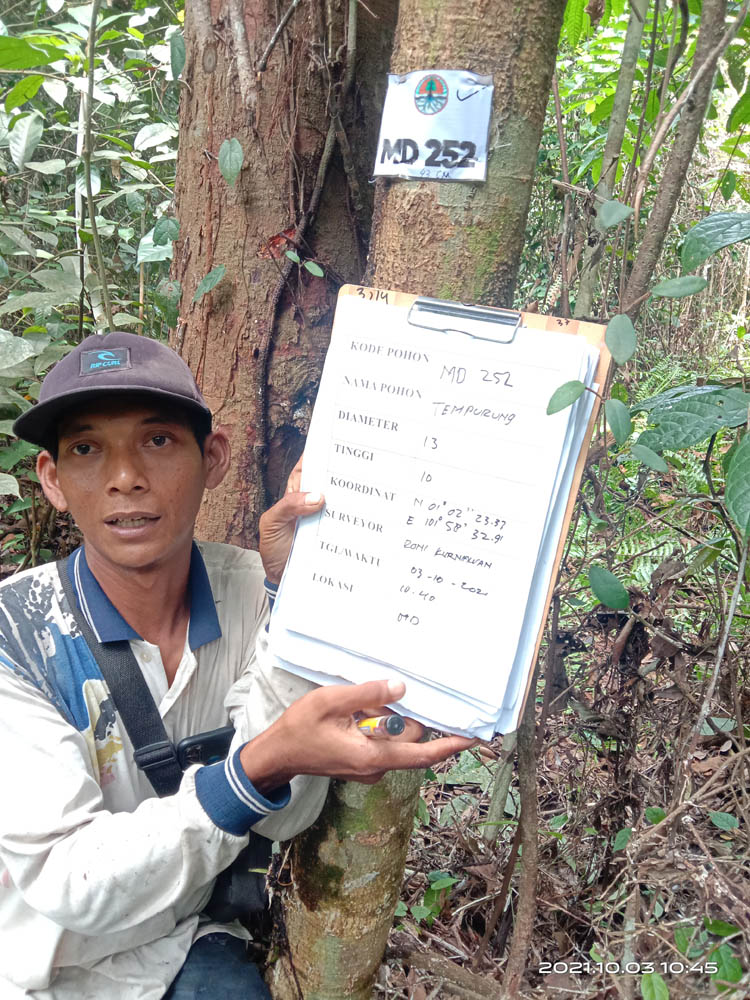 MD 252
42 CM
RIP CURL
KODE POHON MD 252
NAMA POHON TEMPURUNG
DIAMETER 13
TINGGI 10
KOORDINAT N 01° 02" 23.37
E 101° 58' 32.91
SURVEYOR ROMI KURNIAWAN
TGL/WAKTU 03-10-2021
10.40
LOKASI
2021.10.03 10:45